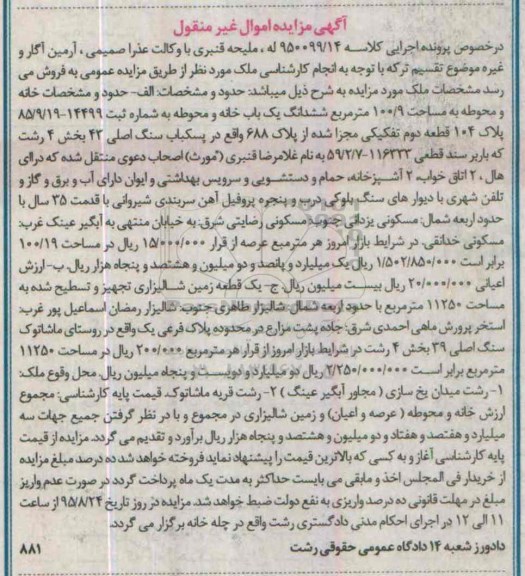 آگهی مزایده اموال غیر منقول
درخصوص پرونده اجرایی کلاسه ۹۵۰۰۹۹/۱۴ له ، ملیحه قنبری با وکالت عذرا صمیمی ، آرمین آگار و
غیره موضوع تقسیم ترکه با توجه به انجام کارشناسی ملک مورد نظر از طریق مزایده عمومی به فروش می
رسد مشخصات ملک مورد مزایده به شرح ذیل میباشد: حدود و مشخصات: الف- حدود و مشخصات خانه
و محوطه به مساحت ۱۰۰/۹ مترمربع ششدانگ یک باب خانه و محوطه به شماره ثبت ۱۴۴۹۹-۸۵/۹/۱۹
پلاک ۱۰۴ قطعه دوم تفکیکی مجزا شده از پلاک ۶۸۸ واقع در پسکیاب سنگ اصلی ۴۳ بخش ۴ رشت
که بارپر سند قطعی ۱۱۶۳۳۳-۵۹/۲/۷ به نام غلامرضا قنبری (مورث) اصحاب دعوی منتقل شده که درای
هال ، ۲ اتاق خواب، ۲ آشپزخانه، حمام و دستشویی و سرویس بهداشتی و ایوان دارای آب و برق و گاز و
تلفن شهری با دیوار های سنگ بلوکی درب و پنجره پروفیل آهن سربندی شیروانی با قدمت ۳۵ سال با
حدود اربعه شمال: مسکونی یزدانی جنوب: مسکونی رضایتی شرق: به خیابان منتهی به آبگیر عینک غرب:
مسکونی خدانقی. در شرایط بازار امروز هر مترمیع عرصه از قرار ۱۵/۰۰۰/۰۰۰ ریال در مساحت ۱۰۰/۱۹
برابر است ۱/۵۰۲/۸۵۰/۰۰۰ ریال یک میلیارد و پانصد و دو میلیون و هشتصد و پنجاه هزار ریال. ب- ارزش
اعیانی ۲۰/۰۰۰/۰۰۰ ریال بیست میلیون ریال. ج- یک قطعه زمین شالیزاری تجهیز و تسطیح شده به
مساحت ۱۱۲۵۰ مترمربع با حدود اربعه شمال: شالیزار طاهری جنوب: شالیزار رمضان اسماعیل پور غرب:
استخر پرورش ماهی احمدی شرق: جاده پشت مزارع در محدوده پلاک فرعی یک واقع در روستای ماشاتوک
سنگ اصلی ۳۹ بخش ۴ رشت در شرایط بازار امروز از قرار هر مترمربع ۲۰۰/۰۰۰ ریال در مساحت ۱۱۲۵۰
مترمربع برابر است ۲/۲۵۰/۰۰۰/۰۰۰ ریال دو میلیارد و دویست و پنجاه میلیون ریال. محل وقوع ملک:
۱- رشت میدان یخ سازی ( مجاور آبگیر عینک ) ۲- رشت قریه ماشاتوک. قیمت پایه کارشناسی: مجموع
ارزش خانه و محوطه ( عرصه و اعیان) و زمین شالیزاری در مجموع و با در نظر گرفتن جمیع جهات سه
میلیارد و هفتصد و هفتاد و دو میلیون و هشتصد و پنجاه هزار ریال برآورد و تقدیم می گردد. مزایده از قیمت
پایه کارشناسی آغاز و به کسی که بالاترین قیمت را پیشنهاد نماید فروخته خواهد شد ده درصد مبلغ مزایده
از خریدار فی المجلس اخذ و مابقی می بایست حداکثر به مدت یک ماه پرداخت گردد در صورت عدم واریز
مبلغ در مهلت قانونی ده درصد واریزی به نفع دولت ضبط خواهد شد. مزایده در روز تاریخ ۹۵/۸/۲۴ از ساعت
۱۱ الی ۱۲ در اجرای احکام مدنی دادگستری رشت واقع در چله خانه برگزار می گردد.
دادورز شعبه ۱۴ دادگاه عمومی حقوقی رشت ۸۸۱